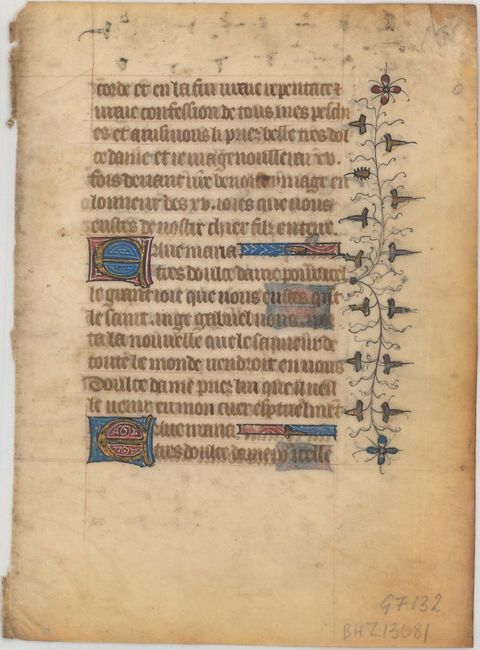 corde et en la fin vraie repentace z
vraie confession de tous mes pechi
es et aussi nous li priez belle tres dol
ce dame et ie magenouillerai xv.
fois devant vre ymage en
lonneur des xv. ioies que vous
eustes de nostre chier filz en terre.
Ave maria
E tres doulce dame pour icel
le grant ioie que vous eustes qnt
le saint ange gabriel vous
ta la nouvelle que le sauveur de
toute le monde vendroit en vous
Doulce dame priez lui que il veil
le venir en mon cuer espirituelmet
Ave maria
E tres doulce dame p icelle
G7132
BHZ13081